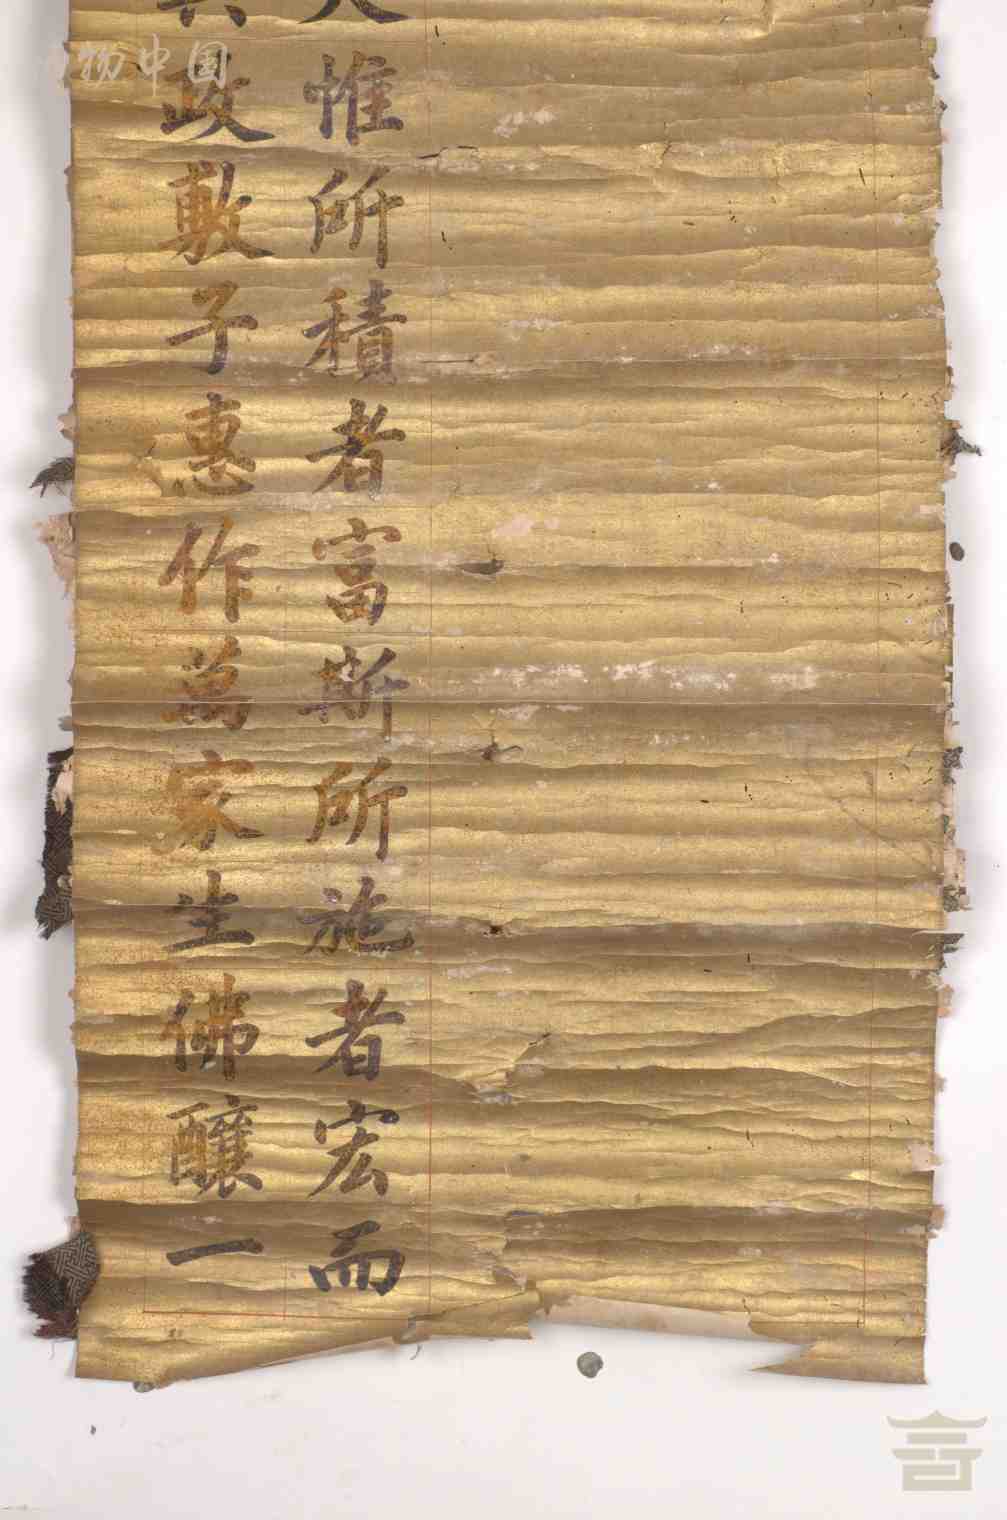 惟所積者富斯所施者宏而
政敷子惠作萬家生佛釀一
物中国